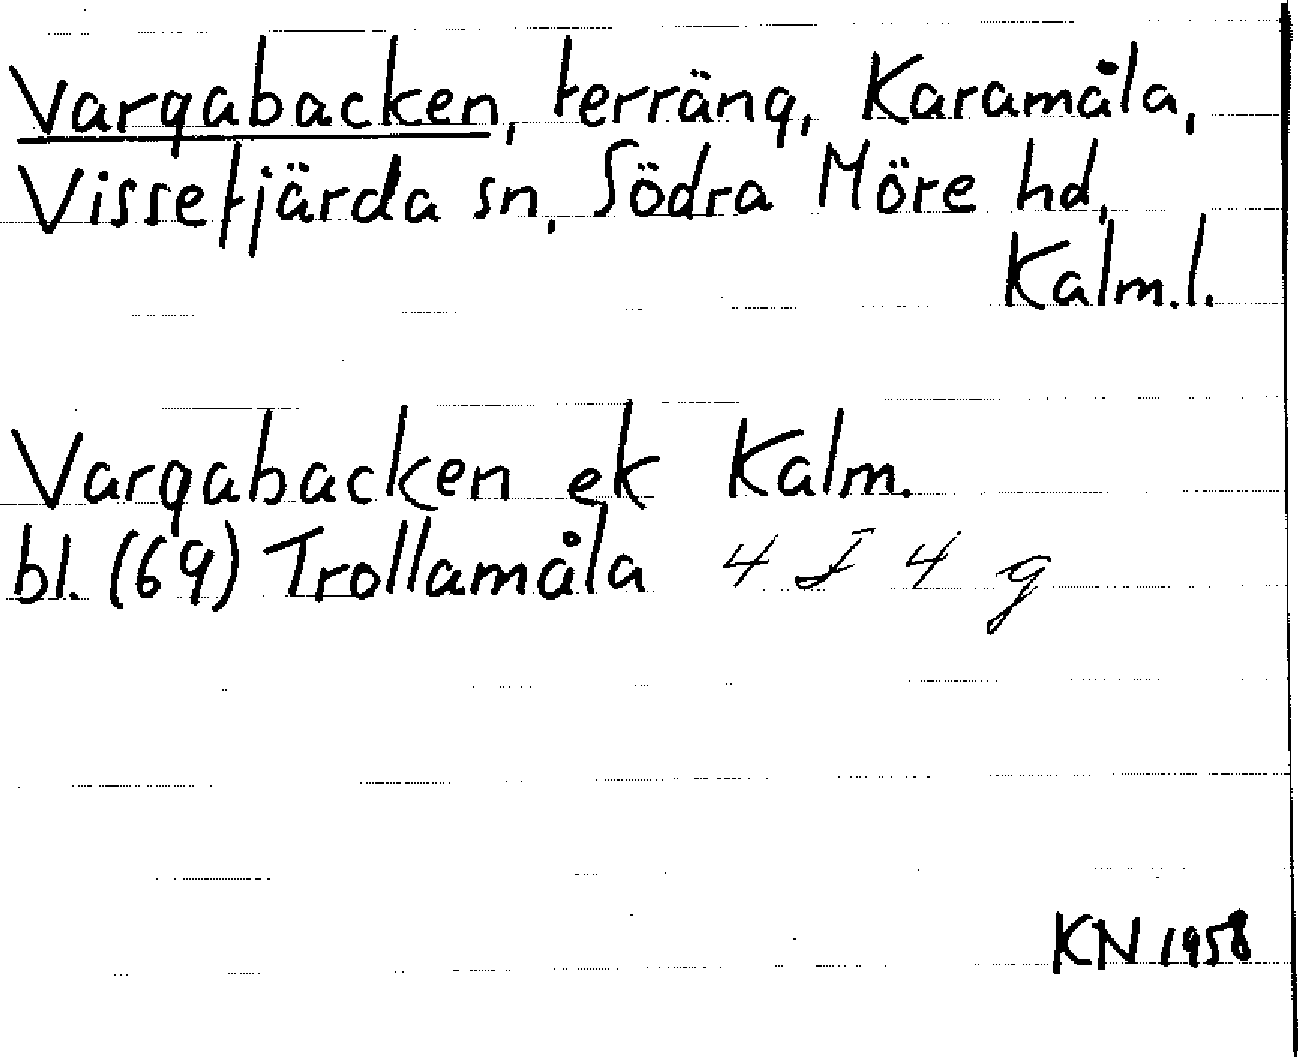 Vargabacken, terräng, Karamåla,
Vissefjärda sn, Södra Möre hd,
Kalm.l.
Vargabacken ek Kalm.
bl. (69) Trollamåla 4 F 4 g
KN 1958